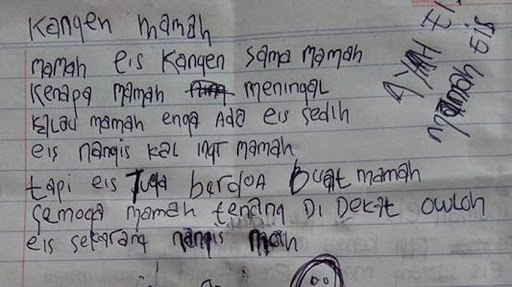 Kangen mamah
mamah eis Kangen sama mamah
Kenapa mamah meningal
kalau mamah enga Ada eis sedih
eis nangis kal ingt mamah
tapi eis Juga berdoA buat mamah
semoga mamah tenang Di Dekat owloh
eis sekarang nangis mah
AYAH EIS
mamah Eis